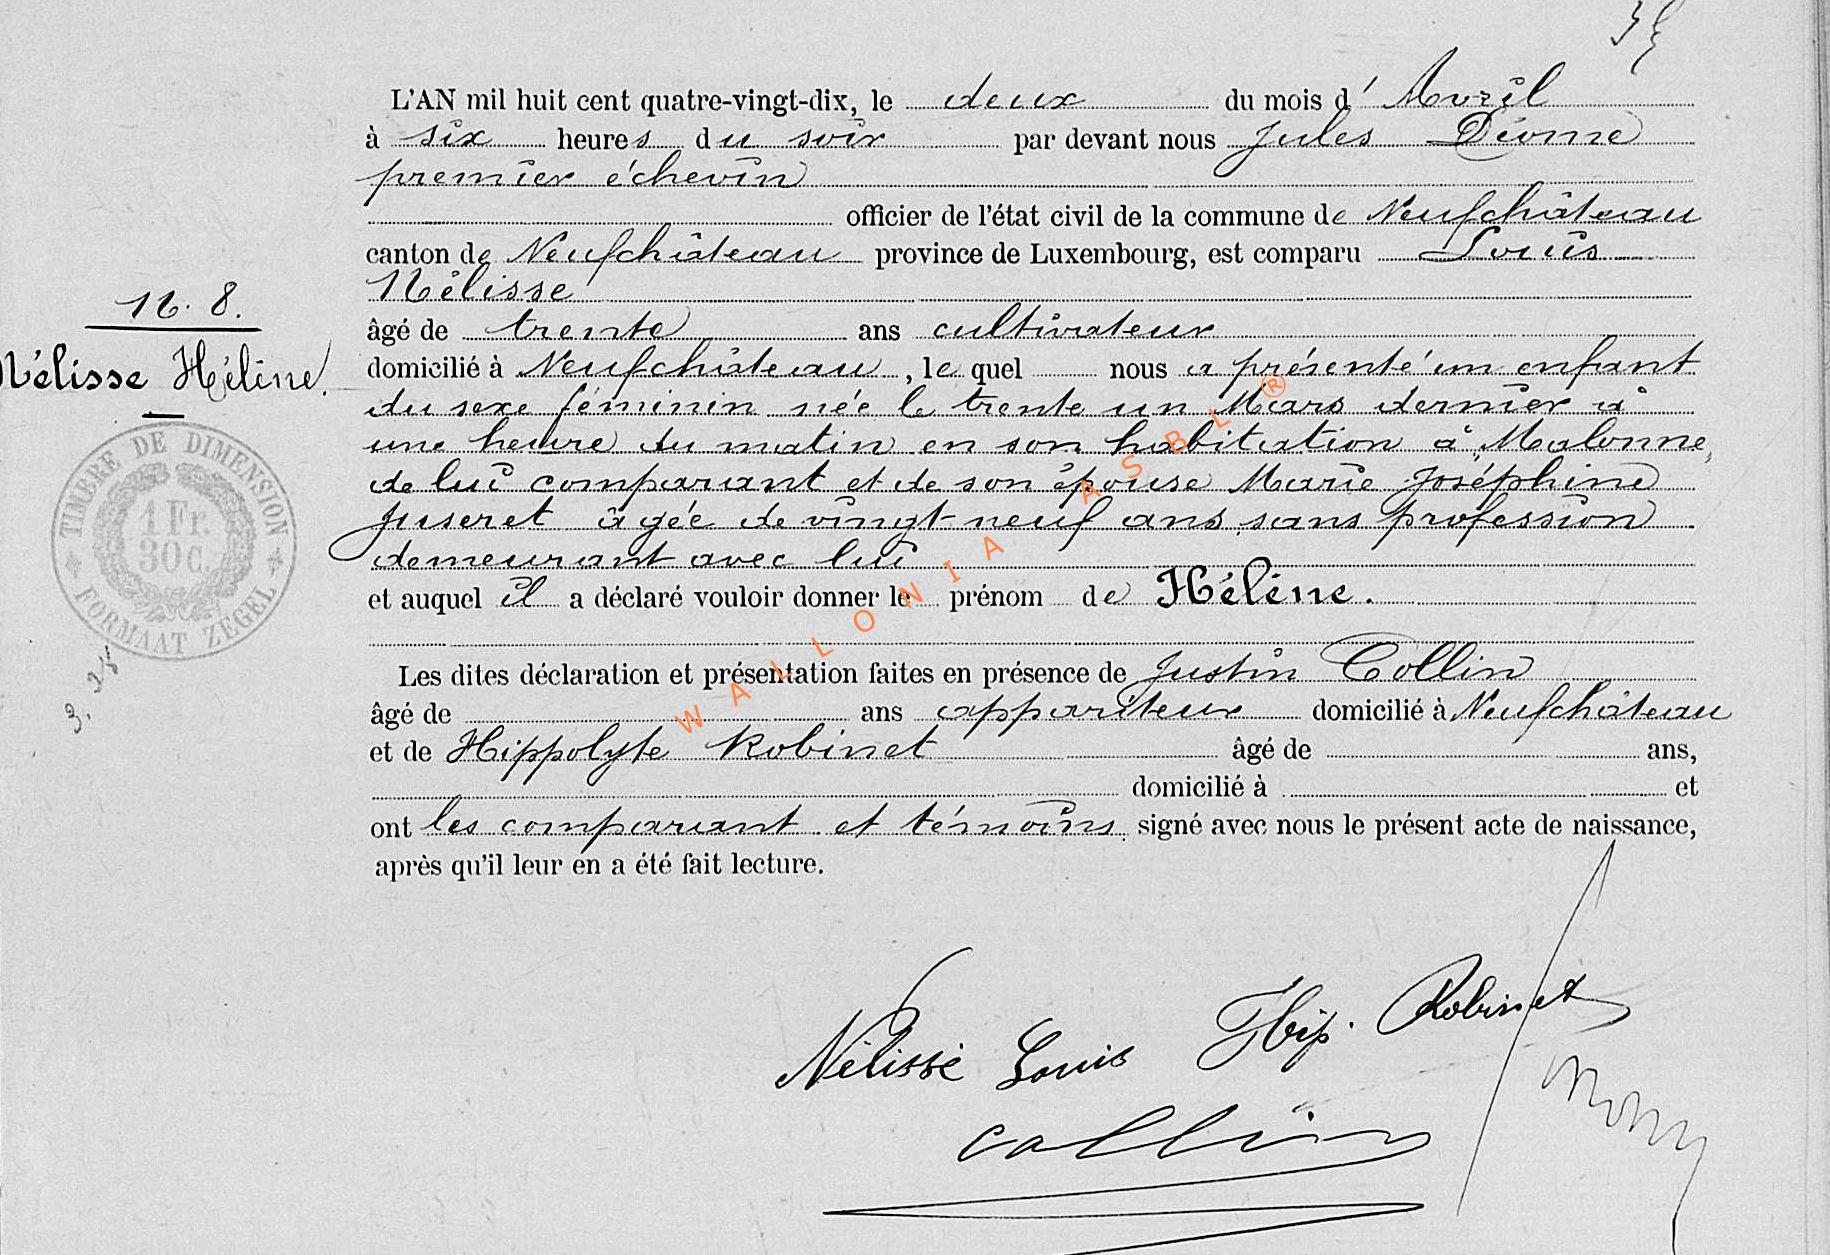 L'AN mil huit cent quatre-vingt-dix, le deux du mois d'Avril
à six heures du soir par devant nous Jules Dione
premier échevin
officier de l'état civil de la commune de Neufchâteau
canton de Neufchâteau province de Luxembourg, est comparu Louis
Nélisse
âgé de trente ans cultivateur
N. 8.
domicilié à Neufchâteau, le quel nous a présenté un enfant
Nélisse Hélène.
du sexe féminin née le trente un Mars dernier à
une heure du matin en son habitation à Malonne,
de lui comparant et de son épouse Marie Joséphine
Juseret âgée de vingt-neuf ans, sans profession
demeurant avec lui
et auquel il a déclaré vouloir donner le prénom de Hélène.
TIMBRE DE DIMENSION
1 Fr.
30 c.
FORMAAT ZEGEL
Les dites déclaration et présentation faites en présence de Justin Collin
âgé de ans appariteur domicilié à Neufchâteau
et de Hippolyte Robinet âgé de ans,
domicilié à et
ont les comparant et témoins signé avec nous le présent acte de naissance,
après qu'il leur en a été fait lecture.
WALLONIA ASBL ®
Nélisse Louis Hip. Robinet
Collin